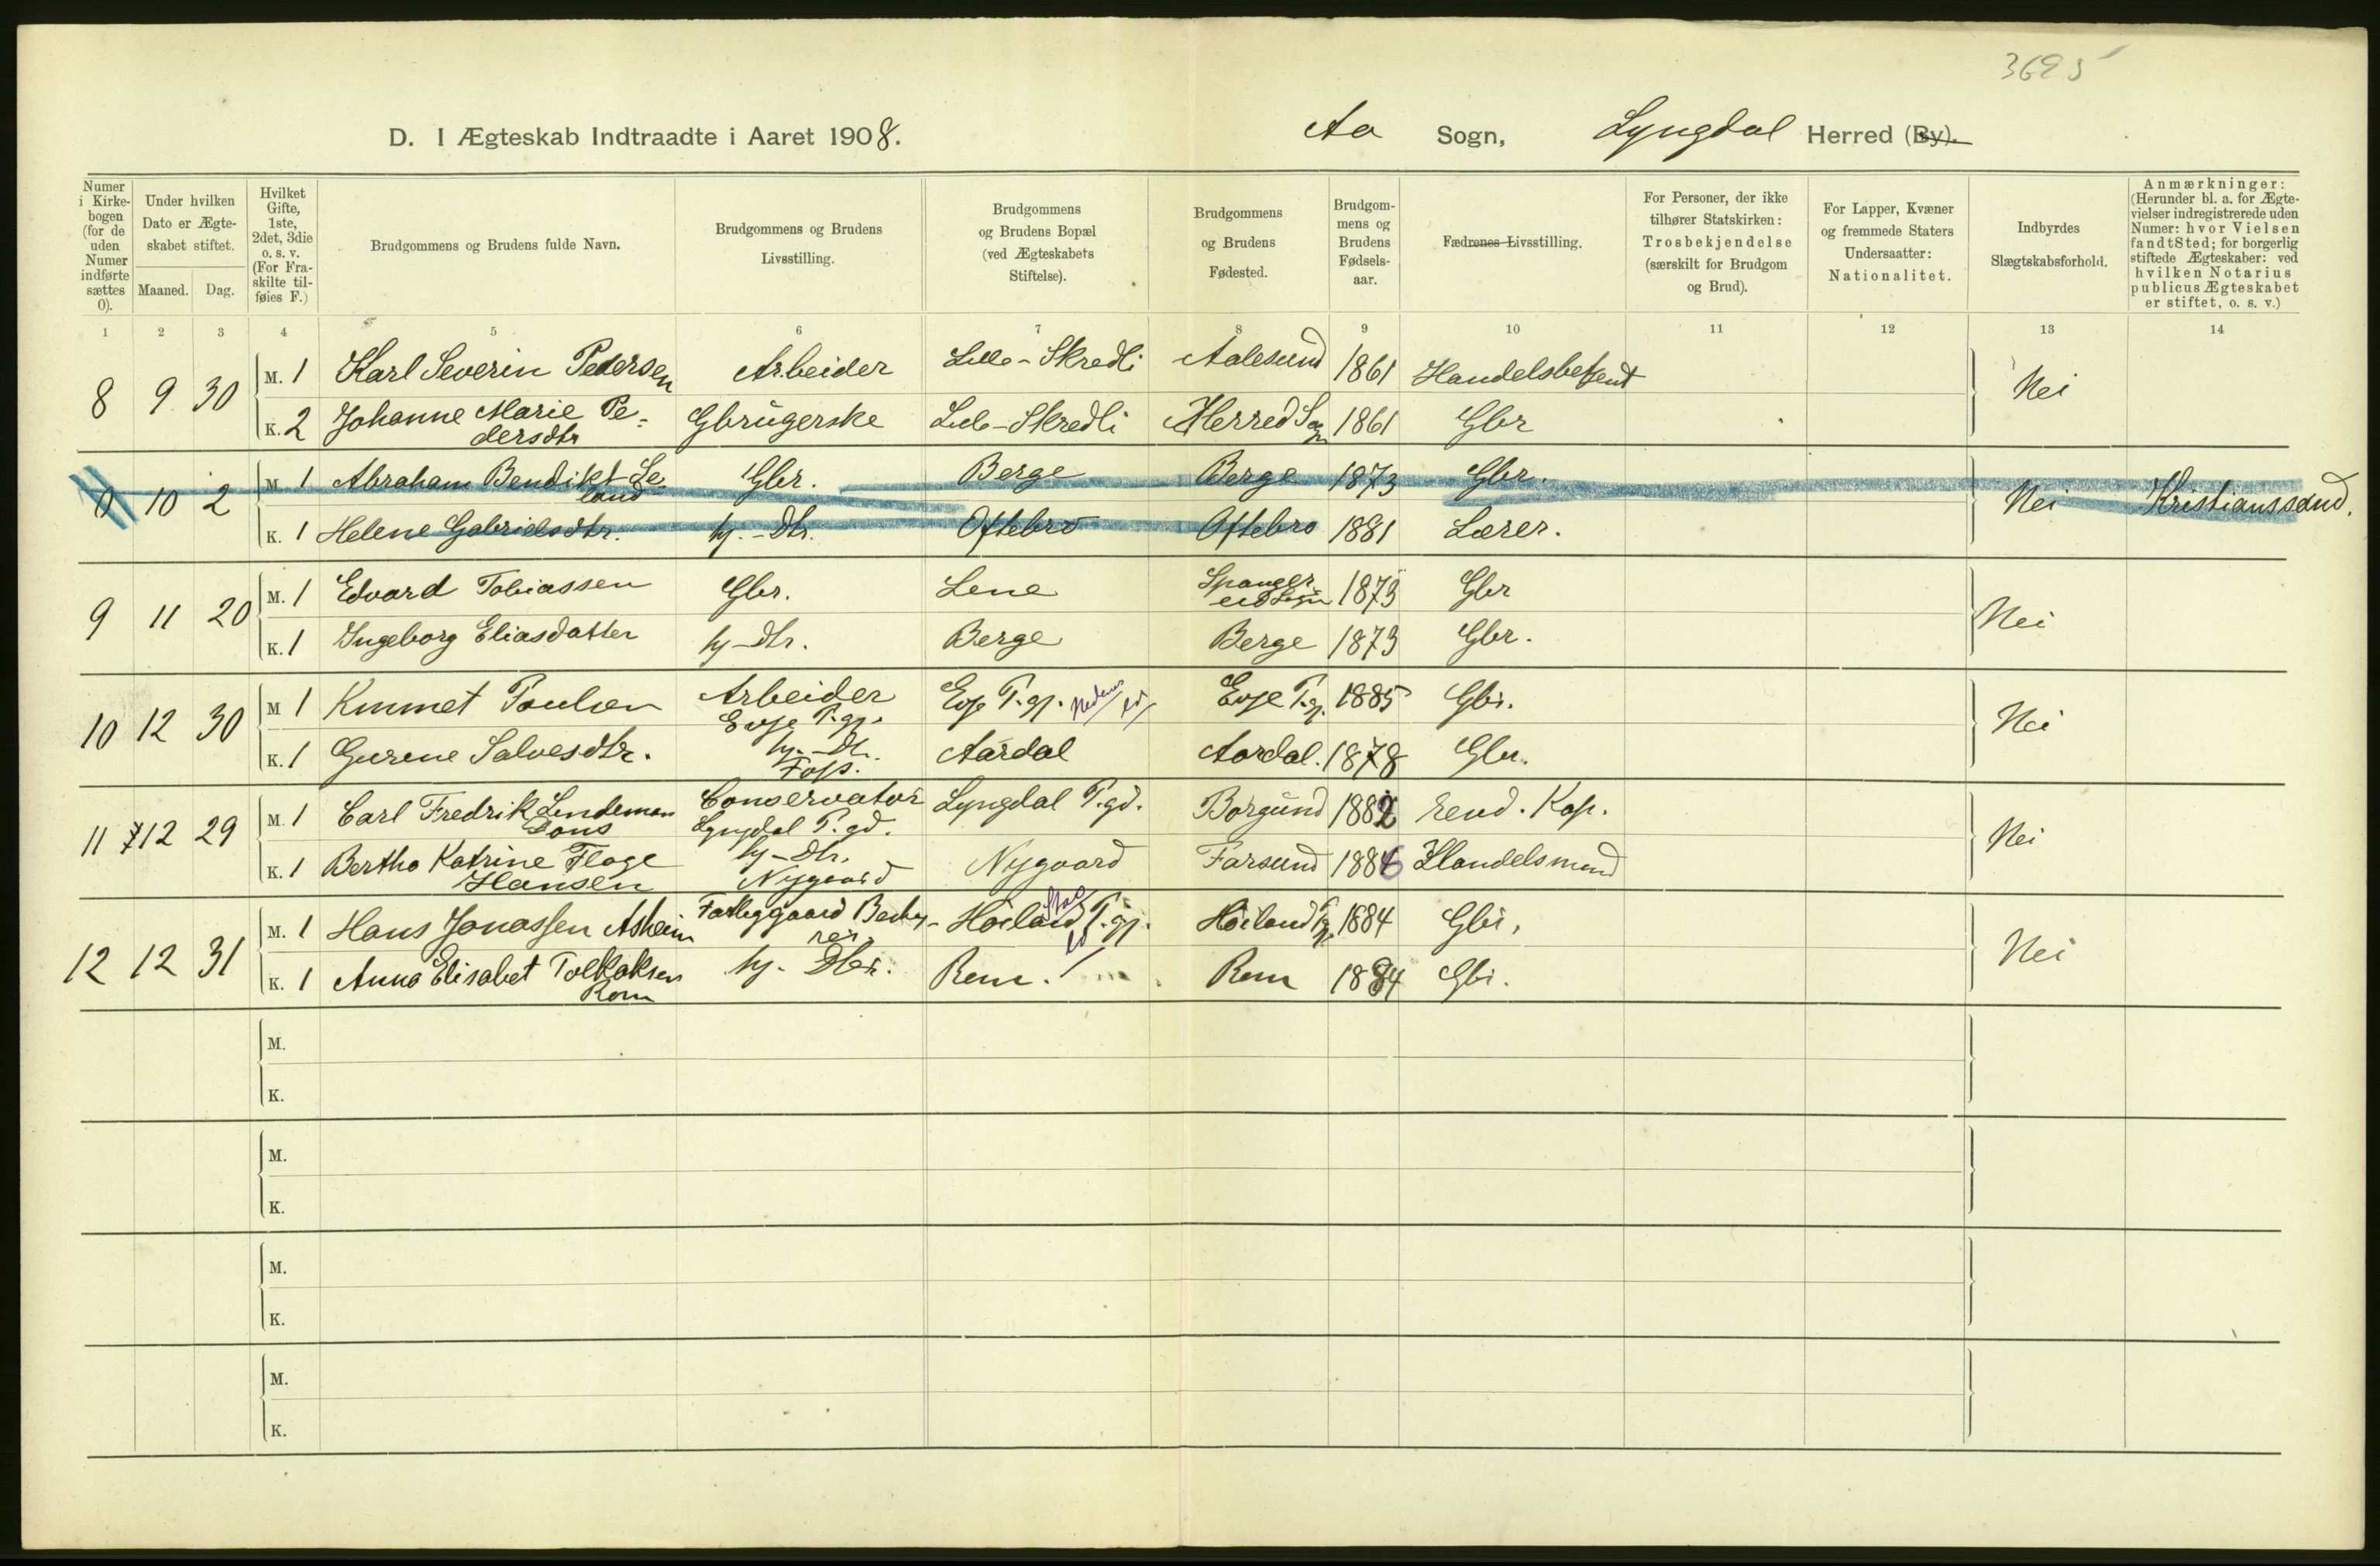 3695
D. I Ægteskab Indtraadte i Aaret 1908.
Aa Sogn, Lyngdal Herred (By).
Numer i Kirkebogen (for de uden Numer indførte sættes 0).
Under hvilken Dato er Ægteskabet stiftet.
Maaned. Dag.
Hvilket Gifte, 1ste, 2det, 3die o. s. v. (For Fraskilte tilføies F.)
Brudgommens og Brudens fulde Navn.
Brudgommens og Brudens Livsstilling.
Brudgommens og Brudens Bopæl (ved Ægteskabets Stiftelse).
Brudgommens og Brudens Fødested.
Brudgommens og Brudens Fødselsaar.
Fædrenes Livsstilling.
For Personer, der ikke tilhører Statskirken: Trosbekjendelse (særskilt for Brudgom og Brud).
For Lapper, Kvæner og fremmede Staters Undersaatter: Nationalitet.
Indbyrdes Slægtskabsforhold.
Anmærkninger: (Herunder bl. a. for Ægtevielser indregistrerede uden Numer: hvor Vielsen fandt Sted; for borgerlig stiftede Ægteskaber: ved hvilken Notarius publicus Ægteskabet er stiftet, o. s. v.)
1 2 3 4 5 6 7 8 9 10 11 12 13 14
8 9 30 M. 1 Karl Severin Pedersen Arbeider Lille-Skredli Aalesund 1861 Handelsbetjent Nei
K. 2 Johanne Marie Pedersdtr Gbrugerske Lille-Skredli Herred Sogn 1861 Gbr
0 10 2 M 1 Abraham Bendikt Leland Gbr. Berge Berge 1873 Gbr. Nei Kristianssand.
K. 1 Helene Gabrielsdtr. hj.-Dtr. Oftebro Oftebro 1881 Lærer.
9 11 20 M. 1 Edvard Tobiassen Gbr. Lene Spangereid Sogn 1873 Gbr Nei
K. 1 Ingeborg Eliasdatter hj-Dtr. Berge Berge 1873 Gbr.
10 12 30 M 1 Poulsen Arbeider Evje P.gj. Evje P.gj. Nedenes Evje P.gj. 1885 Gbr. Nei
K. 1 Gurine Salvesdtr. hj.-Dtr. Foss. Aardal Aardal. 1878 Gbr.
11 12 29 M. 1 Carl Fredrik Lindeman Conservator Lyngdal P.gd. Lyngdal P.gd. Borgund 1882 resid. Kap. Nei
K. 1 Bertha Katrine Flage Hansen hj-Dtr. Nygaard Nygaard Farsund 1886 Handelsmand
12 12 31 M. 1 Hans Jonassen Asheim Høiland P.gj. Høiland P.gj. 1884 Gbr. Nei
K. 1 Anna Elisabet Tollaksen Rom hj.-Dtr. Rom. Rom 1884 Gbr.
M.
K.
M.
K.
M.
K.
M.
K.